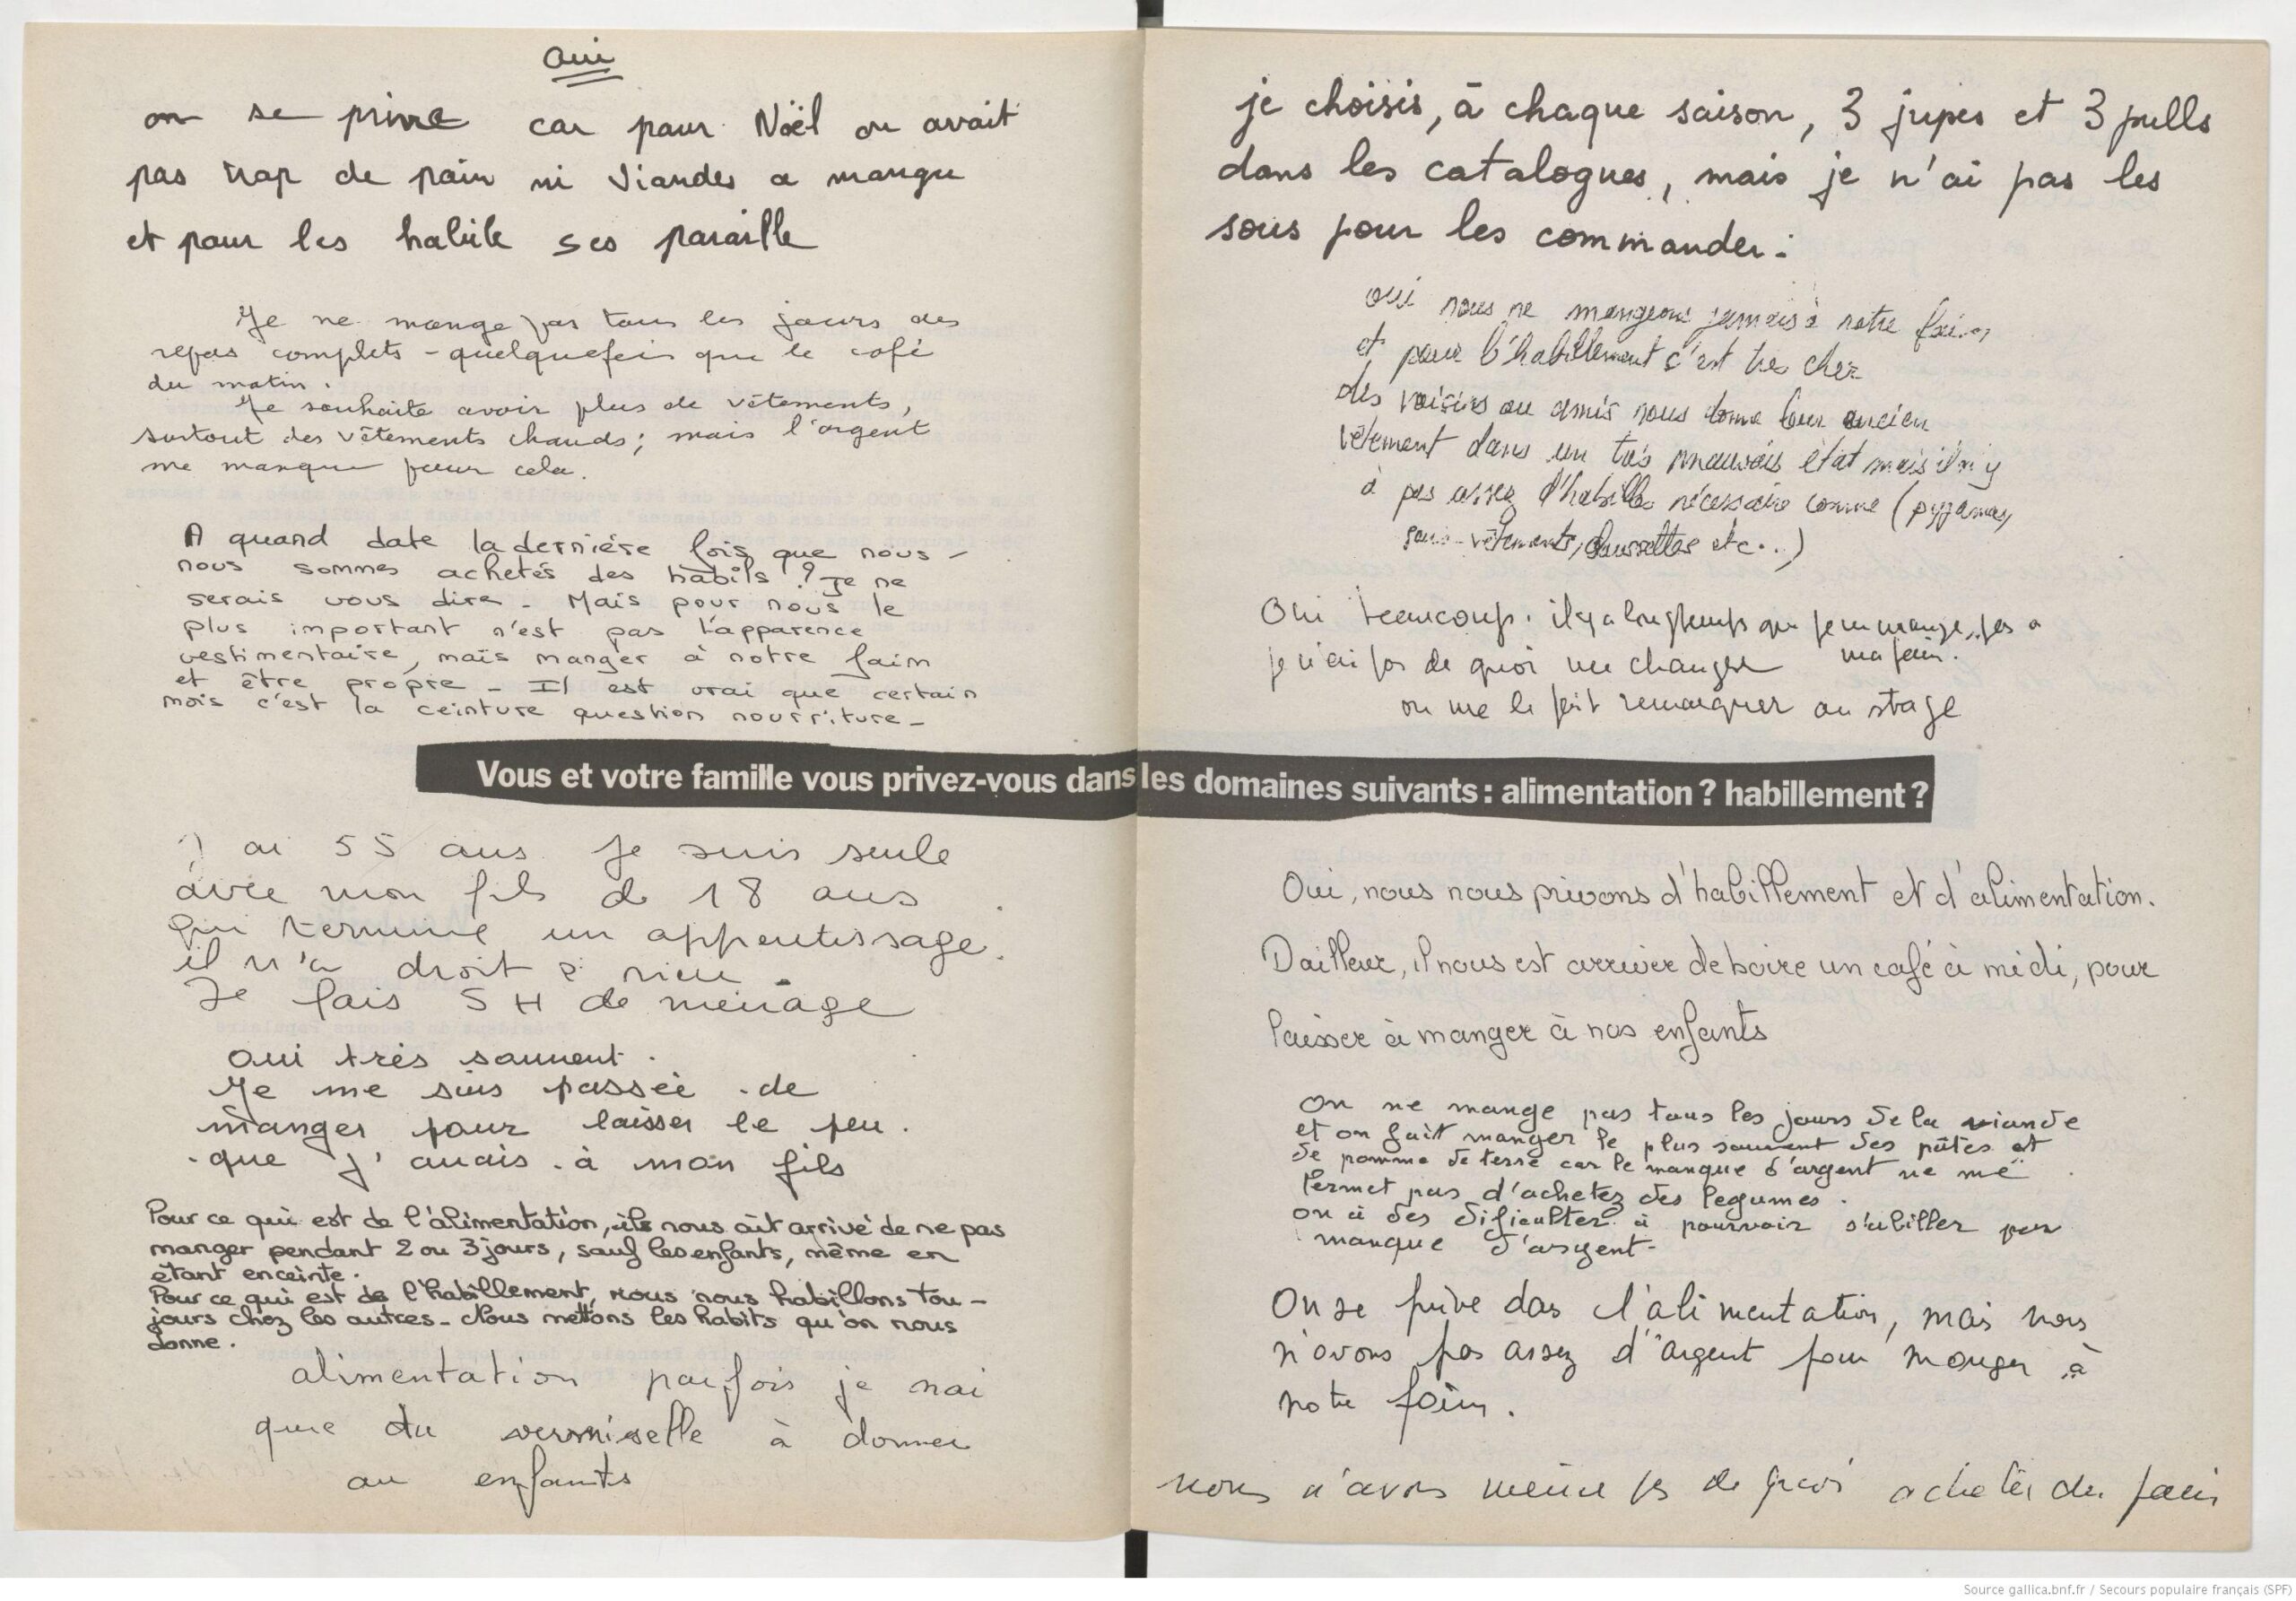 oui
on se prive car pour Noël on avait
pas trop de pain ni viandes a mangu
et pour les habile ses paraille
Je ne mange pas tous les jours des
repas complets - quelquefois que le café
du matin.
Je souhaite avoir plus de vêtements,
surtout des vêtements chauds ; mais l'argent
me manque pour cela.
A quand date la dernière fois que nous -
nous sommes achetés des habils ? Je ne
serais vous dire - Mais pour nous le
plus important n'est pas l'apparence
vestimentaire, mais manger à notre faim
et être propre - Il est vrai que certain
mois c'est la ceinture question nourriture -
Vous et votre famille vous privez-vous dans les domaines suivants : alimentation ? habillement ?
J ai 55 ans Je suis seule
avec mon fils de 18 ans
qui termine un apprentissage.
il n'a droit à rien.
Je fais 5 H de ménage
oui très souvent.
Je me suis passée de
manger pour laisser le peu.
que j'avais à mon fils
Pour ce qui est de l'alimentation, ils nous ait arrivé de ne pas
manger pendant 2 ou 3 jours, sauf les enfants, même en
étant enceinte.
Pour ce qui est de l'habillement, nous nous habillons tou -
jours chez les autres - Nous mettons les habits qu'on nous
donne.
alimentation parfois je nai
que du vermiselle à donner
au enfants
je choisis, à chaque saison, 3 jupes et 3 pulls
dans les catalogues, mais je n'ai pas les
sous pour les commander :
oui nous ne mangeons jamais à notre faim
et pour l'habillement c'est tres cher
des voisins ou amis nous donne leur ancien
vêtement dans un tres mauvais état mais il n'y
à pas assez d'habille nécessaire comme (pyjamas,
sous-vêtements, chaussettes etc...)
Oui beaucoup. il y a longtemps que je ne mange pas a
ma faim.
je n'ai pas de quoi me changer
on me le fait remarquer au stage
Oui, nous nous privons d'habillement et d'alimentation.
Dailleur, il nous est arriver de boire un café à midi, pour
laisser à manger à nos enfants
On ne mange pas tous les jours de la viande
et on fait manger le plus souvent des pâtes et
de pomme de terre car le manque d'argent ne me
permet pas d'achetez des legumes.
on à des dificulter à pourvoir s'abiller par
manque d'argent -
On se prive das l'alimentation, mais nous
n'avons pas assez d'argent pour manger à
notre faim.
nous n'avons même pas de quoi acheter du pain
Source gallica.bnf.fr / Secours populaire français (SPF)